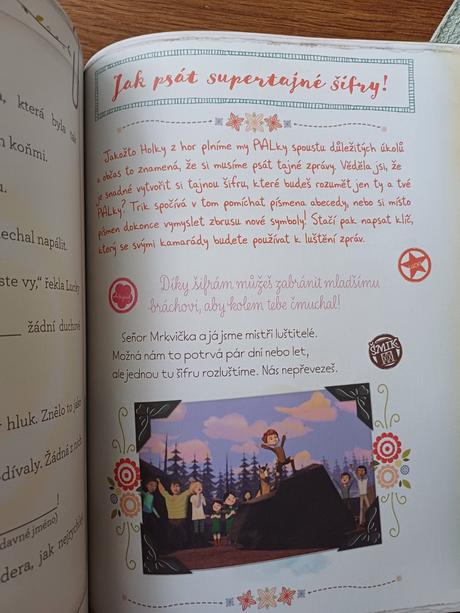 , která byla tak
koňmi.
u.
echal napálit.
ste vy,“ řekla Lucky
žádní duchové
hluk. Znělo to jako
dívaly. Žádná z nich
!
davné jméno)
dera, jak nejrychle
Jak psát supertajné šifry!
Jakožto Holky z hor plníme my PALky spoustu důležitých úkolů
a občas to znamená, že si musíme psát tajné zprávy. Věděla jsi, že
je snadné vytvořit si tajnou šifru, které budeš rozumět jen ty a tvé
PALky? Trik spočívá v tom pomíchat písmena abecedy, nebo si místo
písmen dokonce vymyslet zbrusu nové symboly! Stačí pak napsat klíč,
který se svými kamarády budete používat k luštění zpráv.
Díky šifrám můžeš zabránit mladšímu
bráchovi, aby kolem tebe čmuchal!
Señor Mrkvička a já jsme mistři luštitelé.
Možná nám to potrvá pár dní nebo let,
ale jednou tu šifru rozluštíme. Nás nepřevezeš.
ŠMIK